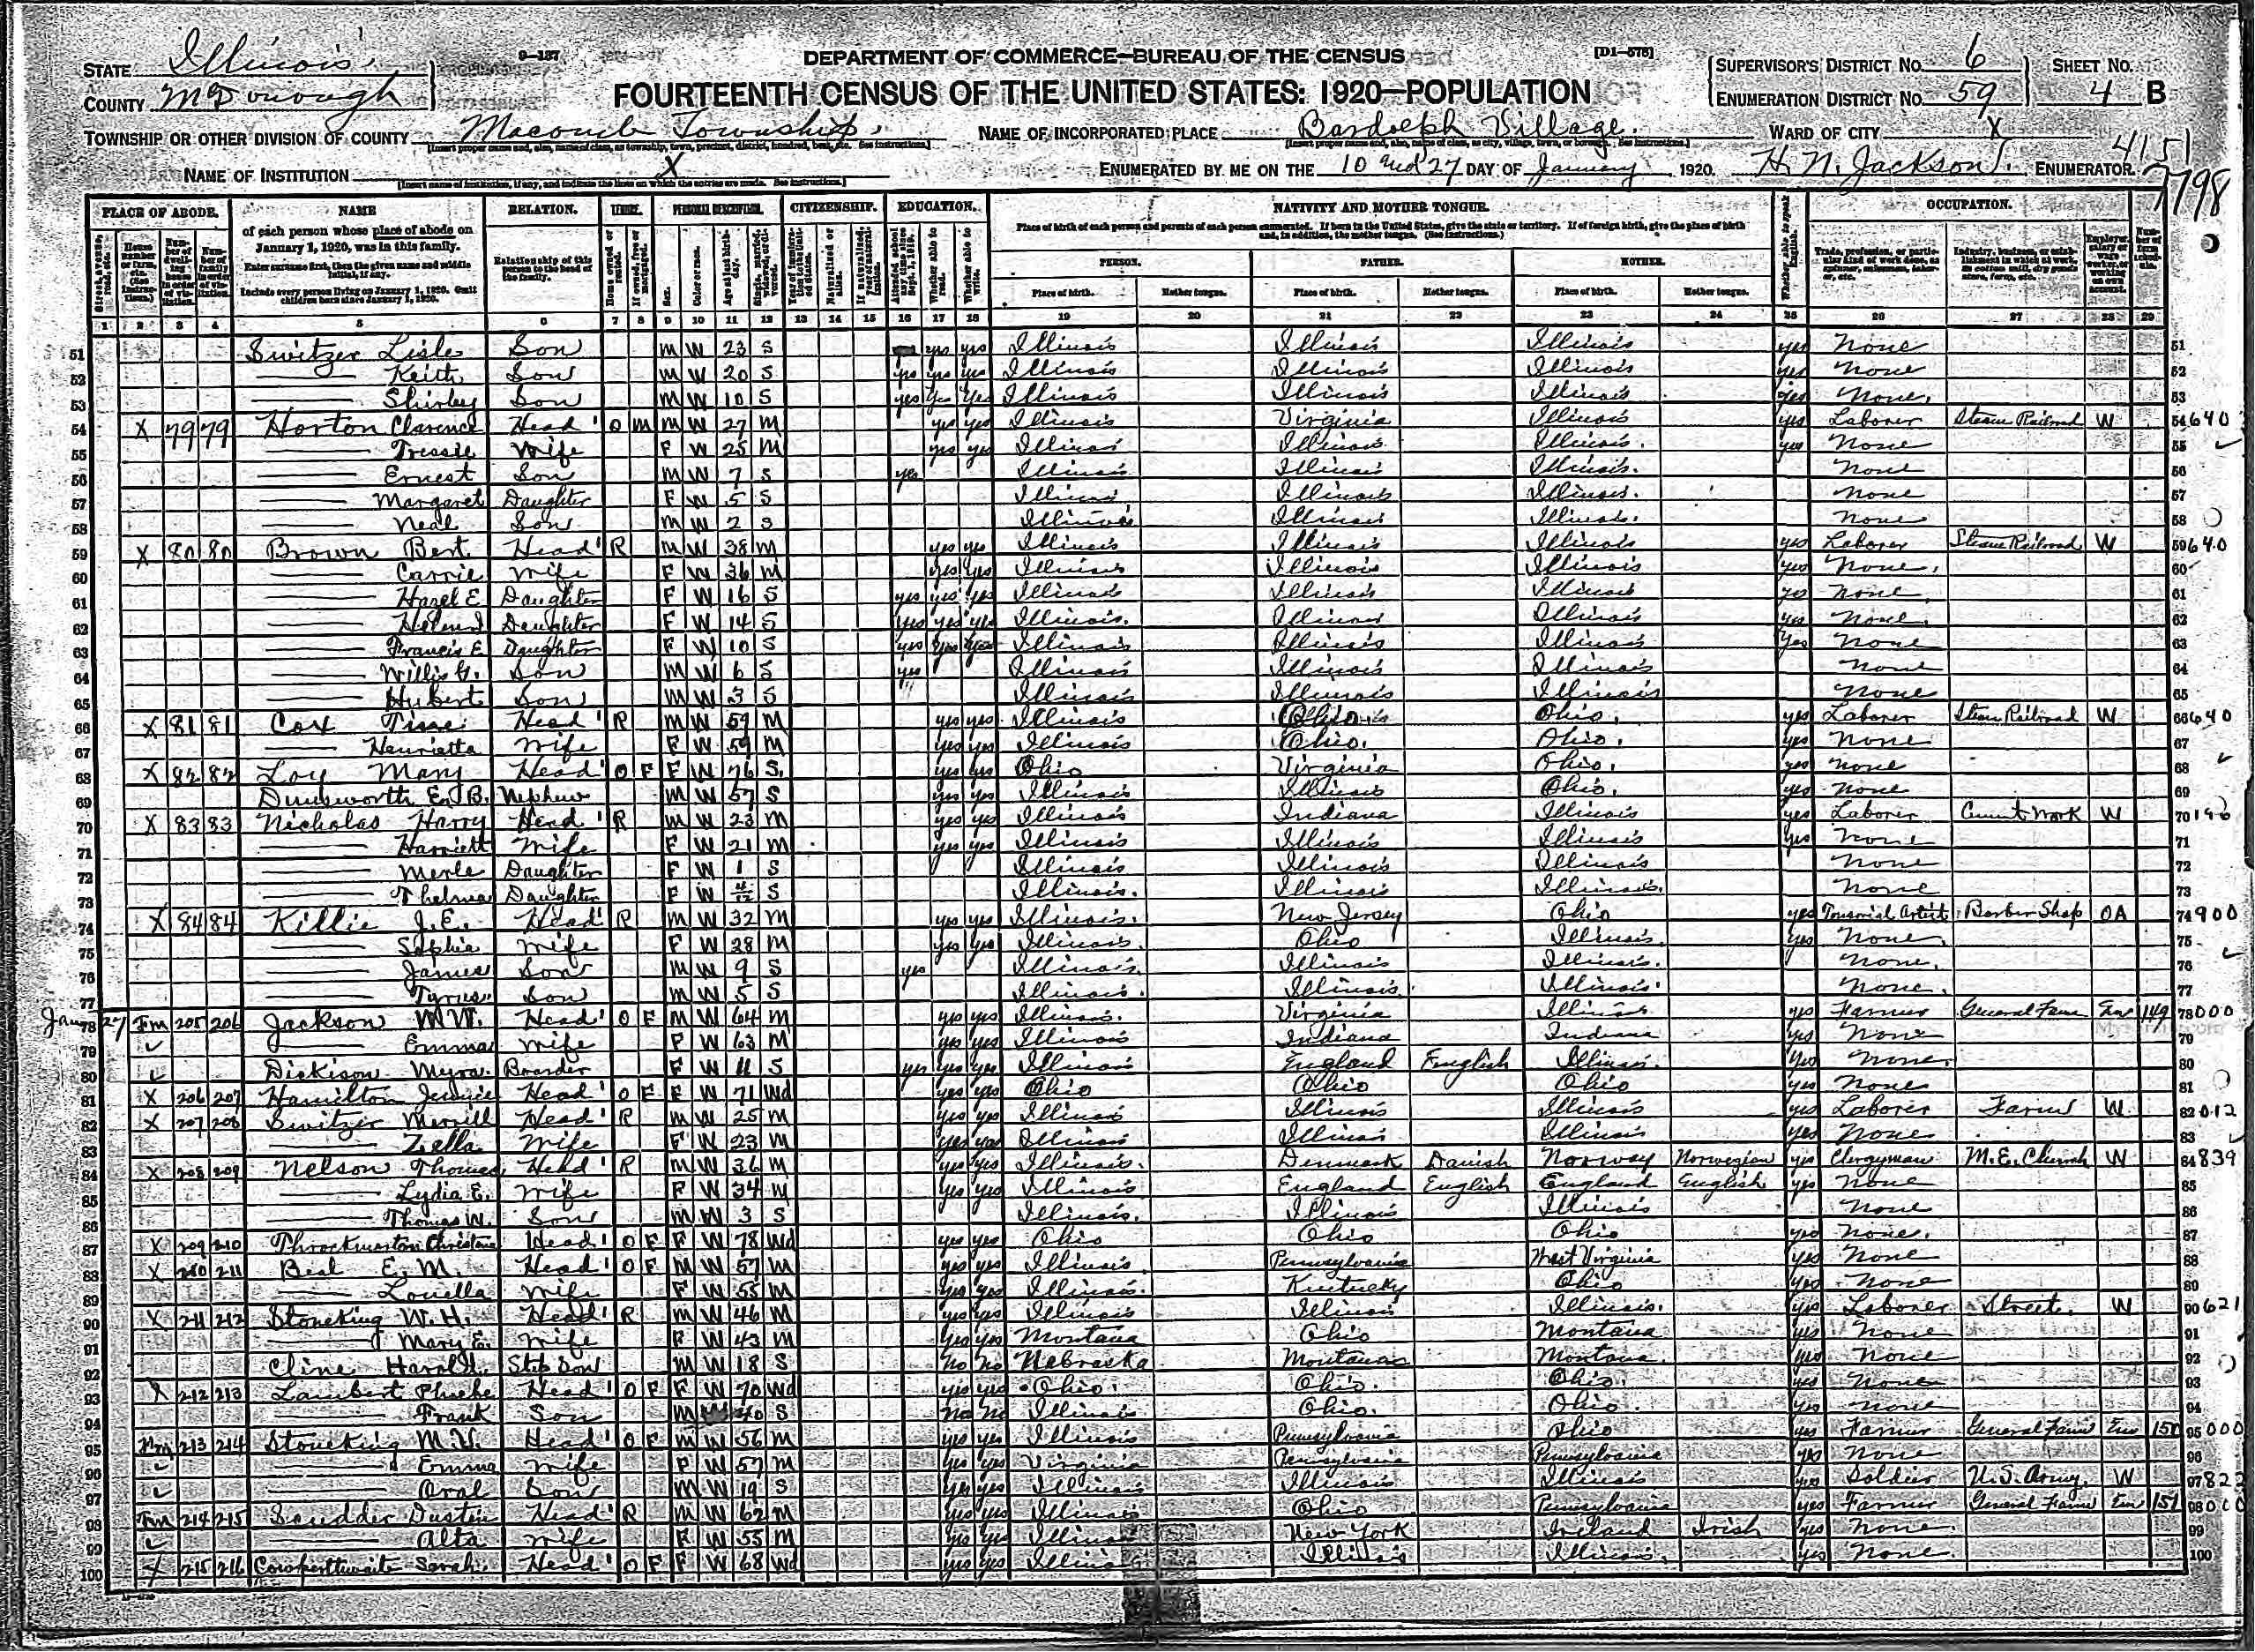 STATE Illinois 9-137 DEPARTMENT OF COMMERCE—BUREAU OF THE CENSUS [D1-578]
COUNTY McDonough FOURTEENTH CENSUS OF THE UNITED STATES: 1920—POPULATION
SUPERVISOR'S DISTRICT No. 6 SHEET No.
ENUMERATION DISTRICT No. 59 4 B
TOWNSHIP OR OTHER DIVISION OF COUNTY Macomb Township. NAME OF INCORPORATED PLACE Bardolph Village. WARD OF CITY X
4151
NAME OF INSTITUTION X ENUMERATED BY ME ON THE 10 and 27 DAY OF January, 1920. H. N. Jackson, ENUMERATOR.
7798
PLACE OF ABODE. NAME RELATION. TENURE. PERSONAL DESCRIPTION. CITIZENSHIP. EDUCATION. NATIVITY AND MOTHER TONGUE. OCCUPATION.
of each person whose place of abode on January 1, 1920, was in this family.
Enter surname first, then the given name and middle initial, if any.
Include every person living on January 1, 1920. Omit children born since January 1, 1920.
Relationship of this person to the head of the family.
Place of birth of each person and parents of each person enumerated. If born in the United States, give the state or territory. If of foreign birth, give the place of birth and, in addition, the mother tongue. (See Instructions.)
PERSON. FATHER. MOTHER.
Place of birth. Mother tongue. Place of birth. Mother tongue. Place of birth. Mother tongue.
1 2 3 4 5 6 7 8 9 10 11 12 13 14 15 16 17 18 19 20 21 22 23 24 25 26 27 28 29
51 Switzer Lisle Son M W 23 S yes yes Illinois Illinois Illinois yes None 51
52 Keith Son M W 20 S yes yes yes Illinois Illinois Illinois yes None 52
53 Shirley Son M W 10 S yes yes yes Illinois Illinois Illinois yes None. 53
54 X 79 79 Horton Clarence Head O M M W 27 M yes yes Illinois Virginia Illinois yes Laborer Steam Railroad W 54 640
55 Tressie Wife F W 25 M yes yes Illinois Illinois Illinois. yes None 55
56 Ernest Son M W 7 S yes Illinois Illinois Illinois. None 56
57 Margaret Daughter F W 5 S Illinois Illinois Illinois. None 57
58 Neal Son M W 2 S Illinois Illinois Illinois. None 58
59 X 80 80 Brown Bert Head R M W 38 M yes yes Illinois Illinois Illinois yes Laborer Steam Railroad W 59 640
60 Carrie Wife F W 36 M yes yes Illinois Illinois Illinois yes None. 60
61 Hazel E Daughter F W 16 S yes yes yes Illinois Illinois Illinois yes None. 61
62 Helen Daughter F W 14 S yes yes yes Illinois. Illinois Illinois yes None. 62
63 Francis E Daughter F W 10 S yes yes yes Illinois Illinois Illinois yes None 63
64 Willis G. Son M W 6 S yes Illinois Illinois Illinois None 64
65 Hubert Son M W 3 S Illinois Illinois Illinois None 65
66 X 81 81 Cox Head R M W 59 M yes yes Illinois Ohio Ohio. yes Laborer Steam Railroad W 66 640
67 Henrietta Wife F W 59 M yes yes Illinois Ohio. Ohio. yes None 67
68 X 82 82 Loy Mary Head O F F W 76 S. yes yes Ohio Virginia Ohio. yes None 68
69 Dunsworth E. B. Nephew M W 57 S yes yes Illinois Illinois Ohio. yes None 69
70 X 83 83 Nicholas Harry Head R M W 23 M yes yes Illinois Indiana Illinois yes Laborer Cement Work W 70
71 Harriett Wife F W 21 M yes yes Illinois Illinois Illinois yes None 71
72 Merle Daughter F W 1 S Illinois Illinois Illinois None 72
73 Thelma Daughter F W S Illinois. Illinois Illinois. None 73
74 X 84 84 Killie J. E. Head R M W 32 M yes yes Illinois. New Jersey Ohio yes Tonsorial Artist Barber Shop OA 74 900
75 Sophia Wife F W 28 M yes yes Illinois. Ohio Illinois. yes None. 75
76 James Son M W 9 S yes Illinois. Illinois Illinois. None. 76
77 Tyrus Son M W 5 S Illinois. Illinois. Illinois. None. 77
Jan 27
78 Fm 205 206 Jackson M. W. Head O F M W 64 M yes yes Illinois. Virginia Illinois yes Farmer General Farm Em 149 78 000
79 Emma Wife F W 63 M yes yes Illinois Indiana Indiana yes None 79
80 Dickison Myra Boarder F W 11 S yes yes yes Illinois England English Illinois. yes None. 80
81 X 206 207 Hamilton Jennie Head O F F W 71 Wd yes yes Ohio Ohio Ohio yes None 81
82 X 207 208 Switzer Merrill Head R M W 25 M yes yes Illinois Illinois Illinois yes Laborer Farm W 82 012
83 Zella Wife F W 23 M yes yes Illinois Illinois Illinois yes None 83
84 X 208 209 Nelson Thomas Head R M W 36 M yes yes Illinois. Denmark Danish Norway Norwegian yes Clergyman M. E. Church W 84 839
85 Lydia E. Wife F W 34 M yes yes Illinois England English England English yes None 85
86 Thomas W. Son M W 3 S Illinois. Illinois Illinois None 86
87 X 209 210 Throckmorton Christena Head O F F W 78 Wd yes yes Ohio Ohio Ohio yes None. 87
88 X 210 211 Beal E. M. Head O F M W 57 M yes yes Illinois. Pennsylvania West Virginia yes None 88
89 Louella Wife F W 55 M yes yes Illinois. Kentucky Ohio yes None 89
90 X 211 212 Stoneking W. H. Head R M W 46 M yes yes Illinois Illinois Illinois. yes Laborer Street. W 90 621
91 Mary E. Wife F W 43 M yes yes Montana Ohio Montana yes None 91
92 Cline Harold Step Son M W 18 S No No Nebraska Montana Montana. yes None 92
93 X 212 213 Lambert Phoebe Head O F F W 70 Wd yes yes Ohio. Ohio. Ohio. yes None 93
94 Frank Son M W 40 S No No Illinois Ohio. Ohio. yes None 94
95 Fm 213 214 Stoneking M. V. Head O F M W 56 M yes yes Illinois Pennsylvania Ohio yes Farmer General Farm Em 150 95 000
96 Emma Wife F W 57 M yes yes Virginia Pennsylvania Pennsylvania yes None 96
97 Oral Son M W 19 S yes yes Illinois Illinois Illinois yes Soldier U. S. Army. W 97 822
98 Fm 214 215 Scudder Dustin Head R M W 62 M yes yes Illinois Ohio Pennsylvania yes Farmer General Farm Em 151 98 000
99 Alta Wife F W 55 M yes yes Illinois New York Ireland Irish yes None. 99
100 X 215 216 Cowperthwaite Sarah. Head O F F W 68 Wd yes yes Illinois Illinois Illinois. yes None. 100